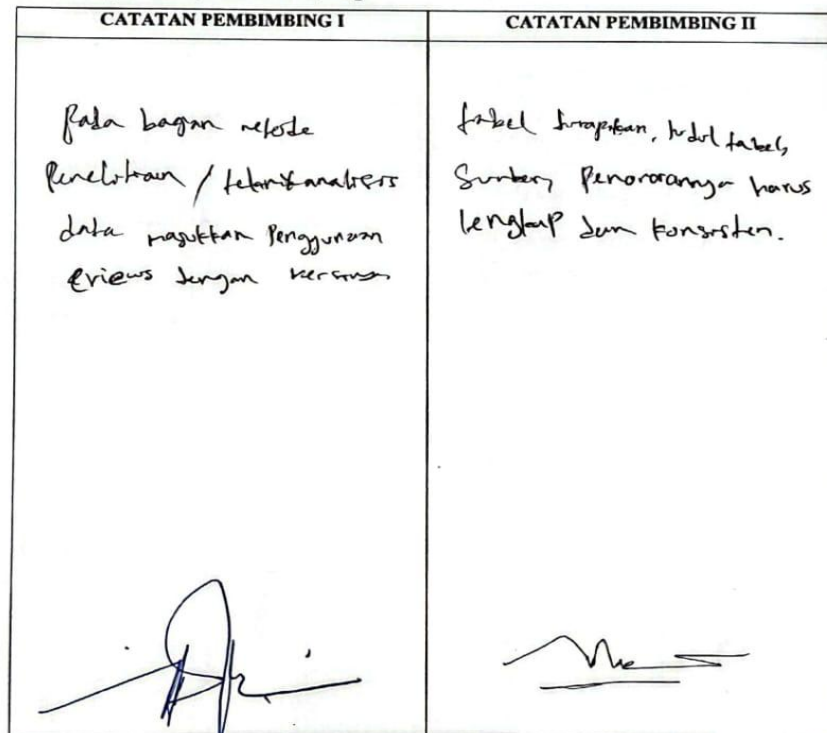 CATATAN PEMBIMBING I
Pada bagian metode
Penelitian / teknik analisis
data masukkan Penggunaan
eviews dengan
CATATAN PEMBIMBING II
tabel dirapikan, judul tabel,
Sumber, Penomorannya harus
lengkap dan konsisten.